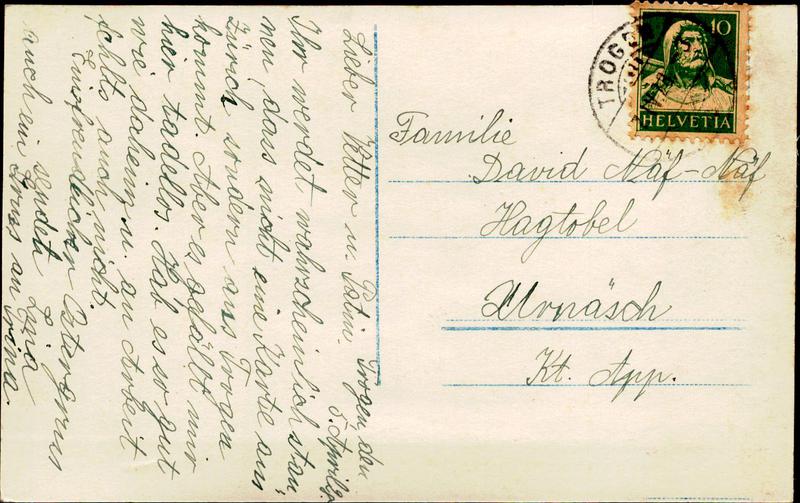 Lieber Vetter u. Patin. Trogen den
5. April
Ihr werdet wahrscheinlich stau-
nen, dass nicht eine Karte aus
Zürich sondern aus Trogen
kommt. Aber es gfällt mir
hier tadellos. Hab es so gut
wie daheim u. an Arbeit
fehlts auch nicht.
Ein freundlichen Ostergruss
sendet Lina
auch ein Gruss an Lina.
Familie
David Näf-Näf
Hagtobel
Urnäsch
Kt. App.
TROGEN
10
HELVETIA